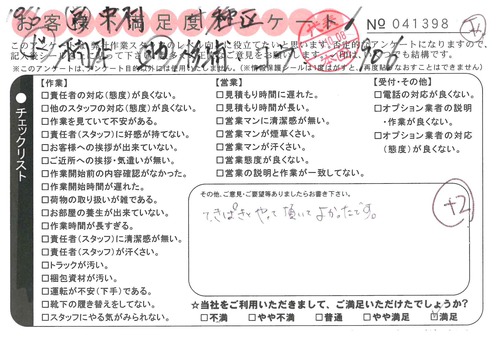 お客様満足度アンケート
№ 041398
このアンケートは弊社作業スタッフのレベル向上に役立てたいと思います。否定的なアンケートになりますので
※このアンケートは、アンケート目的以外には使用いたしません。
チェックリスト
【作業】
□責任者の対応(態度)が良くない。
□他のスタッフの対応(態度)が良くない。
□作業を見ていて不安がある。
□責任者(スタッフ)に好感が持てない。
□お客様への挨拶が出来ていない。
□ご近所への挨拶・気遣いが無い。
□作業開始前の内容確認がなかった。
□作業開始時間が遅れた。
□荷物の取り扱いが雑である。
□お部屋の養生が出来ていない。
□作業時間が長すぎる。
□責任者(スタッフ)に清潔感が無い。
□責任者(スタッフ)が汗くさい。
□トラックが汚い。
□梱包資材が汚い。
□運転が不安(下手)である。
□靴下の履き替えをしてない。
□スタッフにやる気がみられない。
【営業】
□見積もり時間に遅れた。
□見積もり時間が長い。
□営業マンに清潔感が無い。
□営業マンが煙草くさい。
□営業マンが汗くさい。
□営業態度が良くない。
□営業の説明と作業が一致してない。
【受付・その他】
□電話の対応が良くない。
□オプション業者の説明
・作業が良くない。
□オプション業者の対応
(態度)が良くない。
その他、ご意見・ご要望等ありましたらお書き下さい。
てきぱきとやって頂いてよかったです。
+2
☆当社をご利用いただきまして、ご満足いただけたでしょうか？
□不満 □やや不満 □普通 □やや満足 □満足